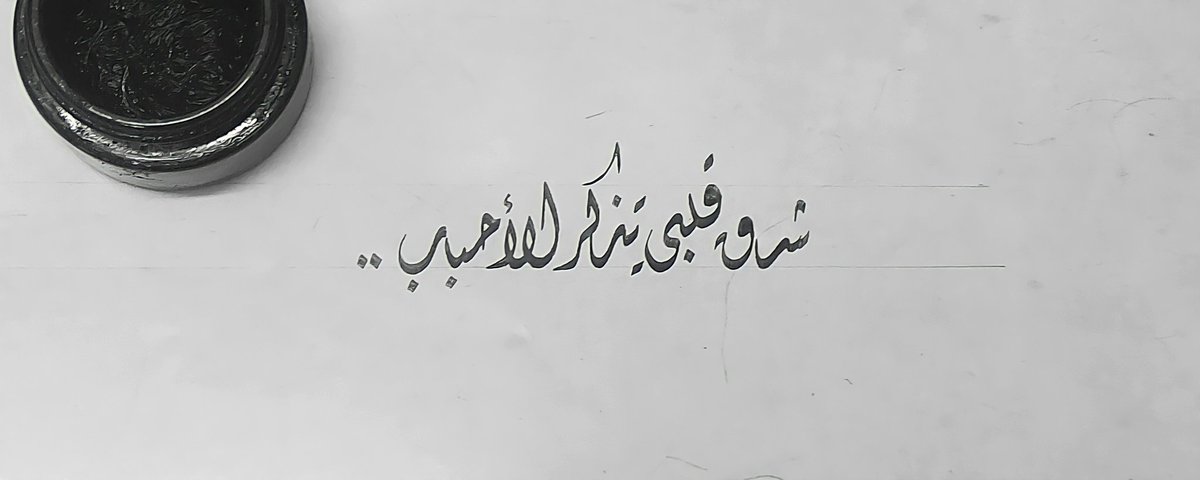 شاق قلبي تذكر الأحباب ..